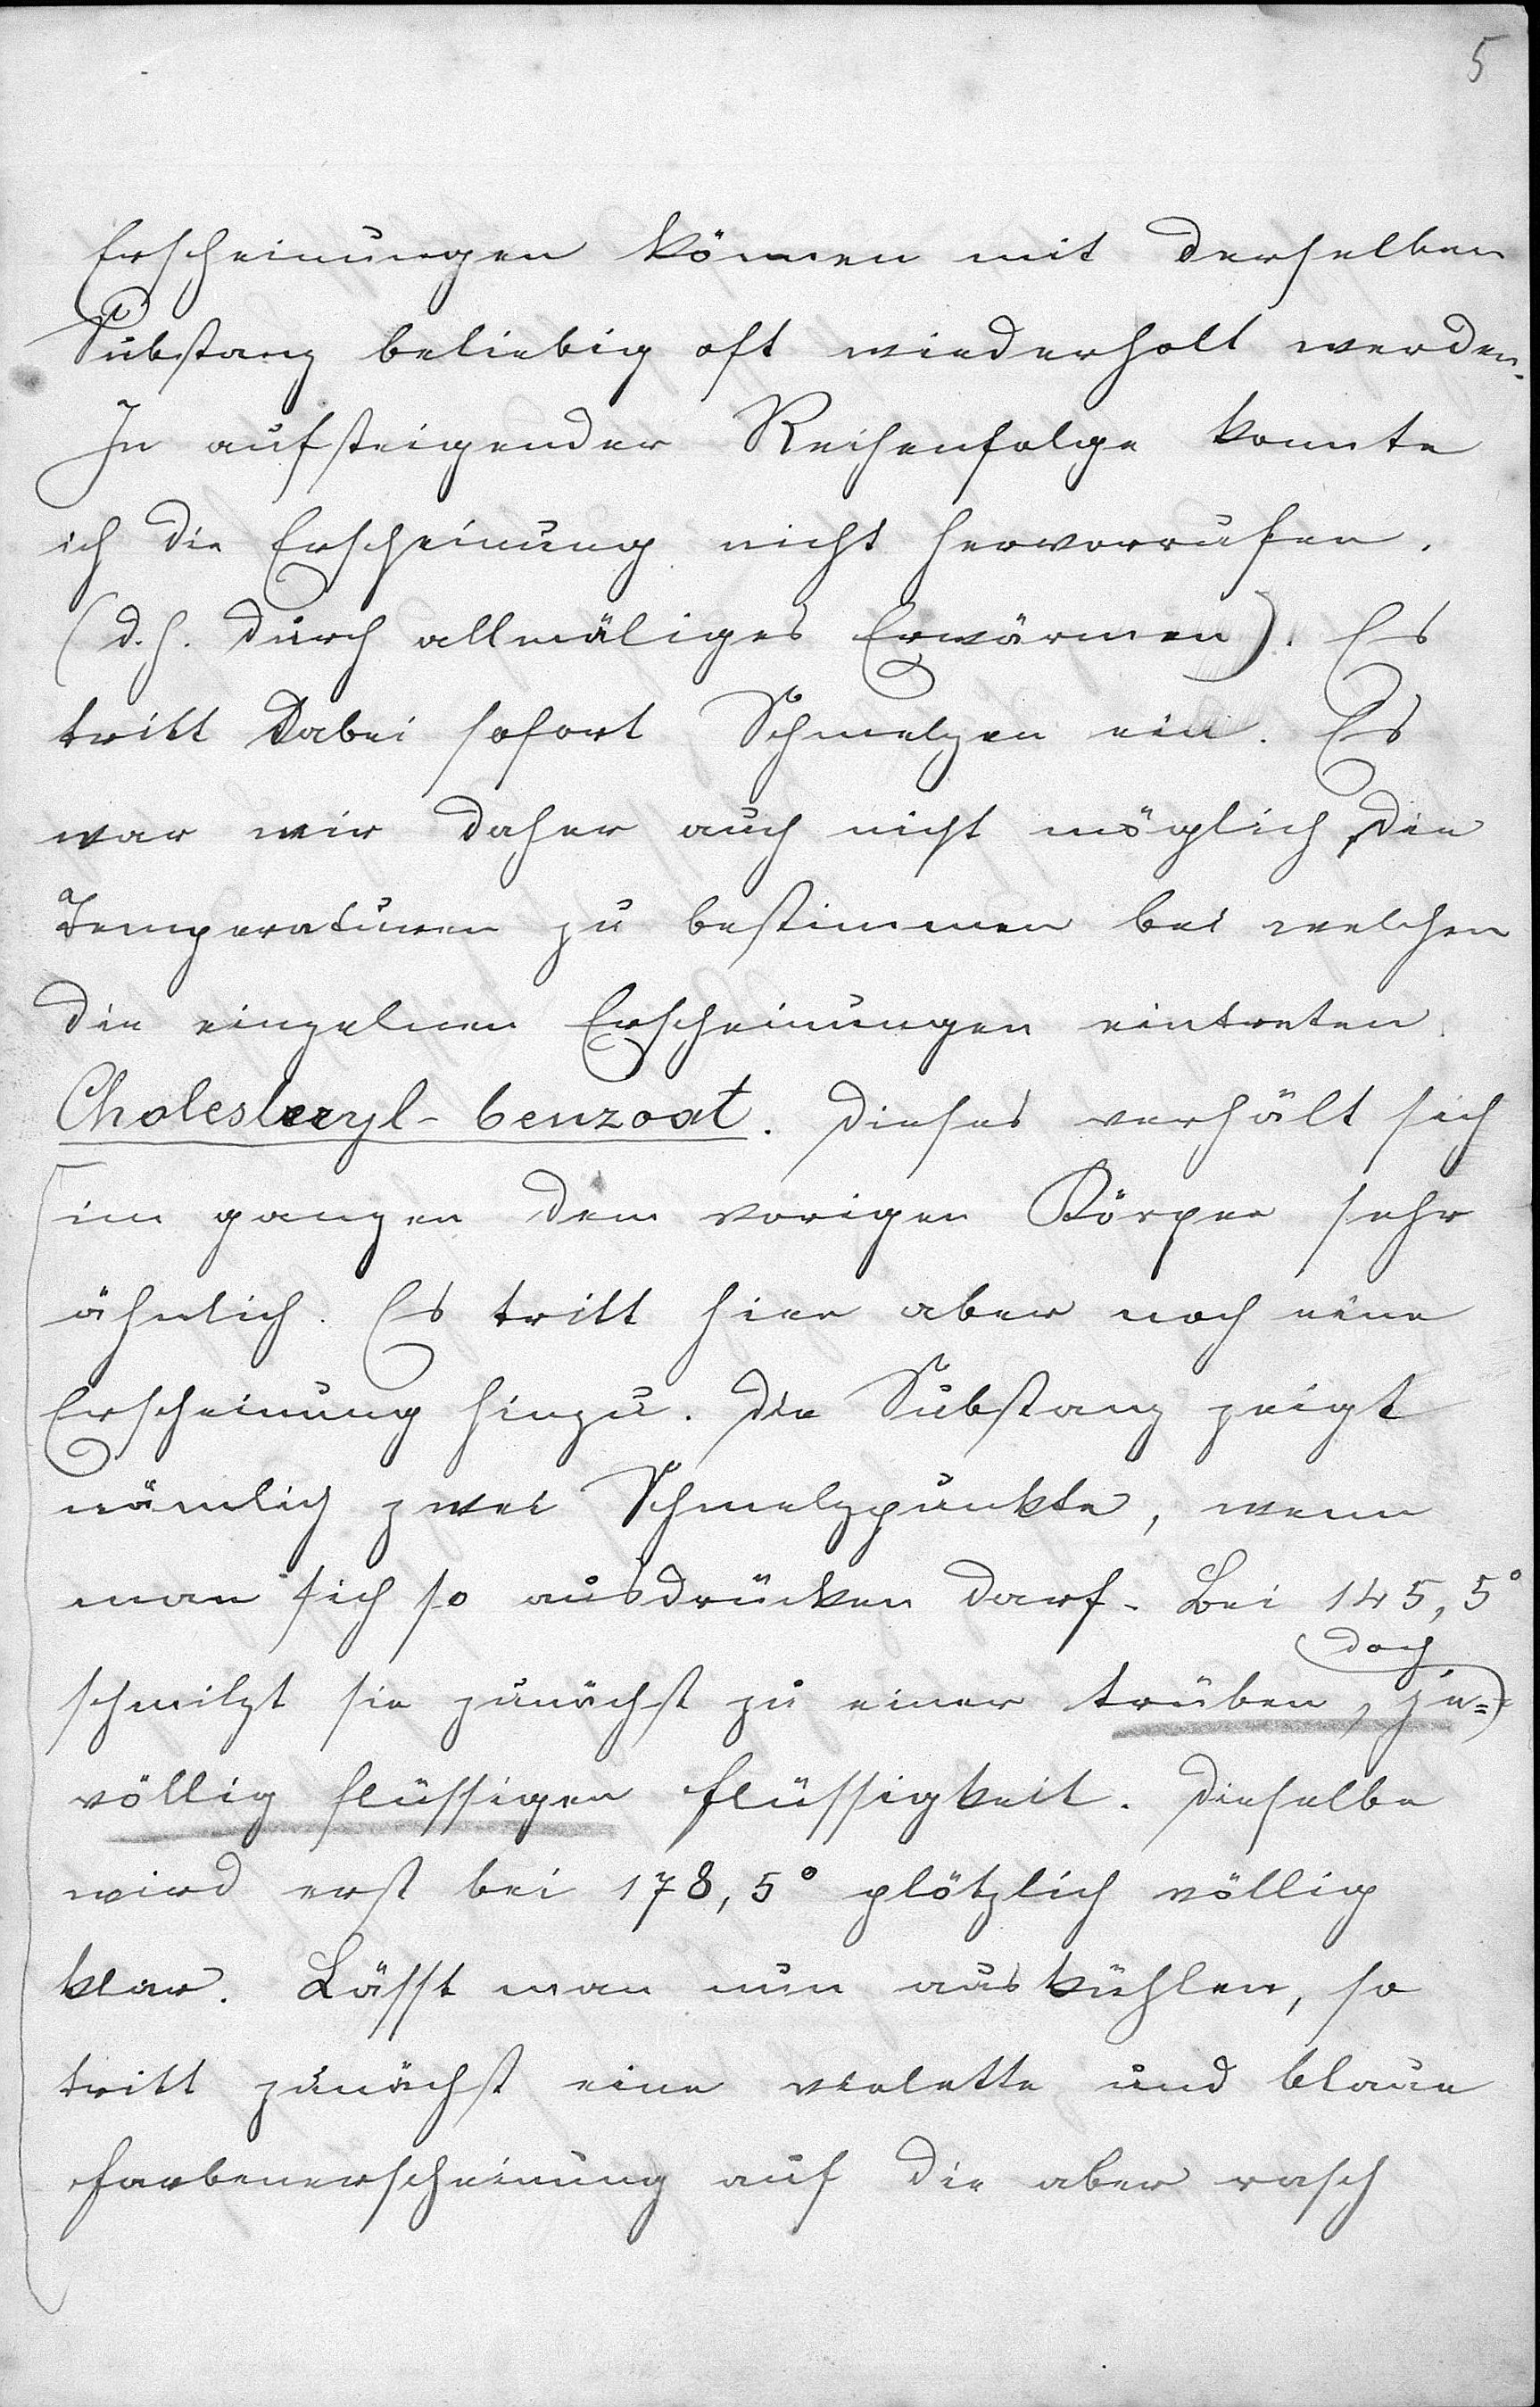 5
Erscheinungen können mit derselben
Substanz beliebig oft wiederholt werden.
In aufsteigender Reihenfolge konnte
ich die Erscheinung nicht hervorrufen.
(d. h. durch allmäliges Erwärmen). Es
tritt dabei sofort Schmelzen ein. Es
war mir daher auch nicht möglich, die
Temperaturen zu bestimmen bei welchen
die einzelnen Erscheinungen eintreten.
Cholesteryl-benzoat. Dieses verhält sich
im ganzen dem vorigen Körper sehr
ähnlich. Es tritt hier aber noch eine
Erscheinung hinzu. Die Substanz zeigt
nämlich zwei Schmelzpunkte, wenn
man sich so ausdrücken darf. Bei 145,5°
doch
schmilzt sie zunächst zu einer trüben, je=
völlig flüssigen Flüssigkeit. Dieselbe
wird erst bei 178,5° plötzlich völlig
klar. Lässt man nun auskühlen, so
tritt zunächst eine violette und blaue
Farbenerscheinung auf die aber rasch